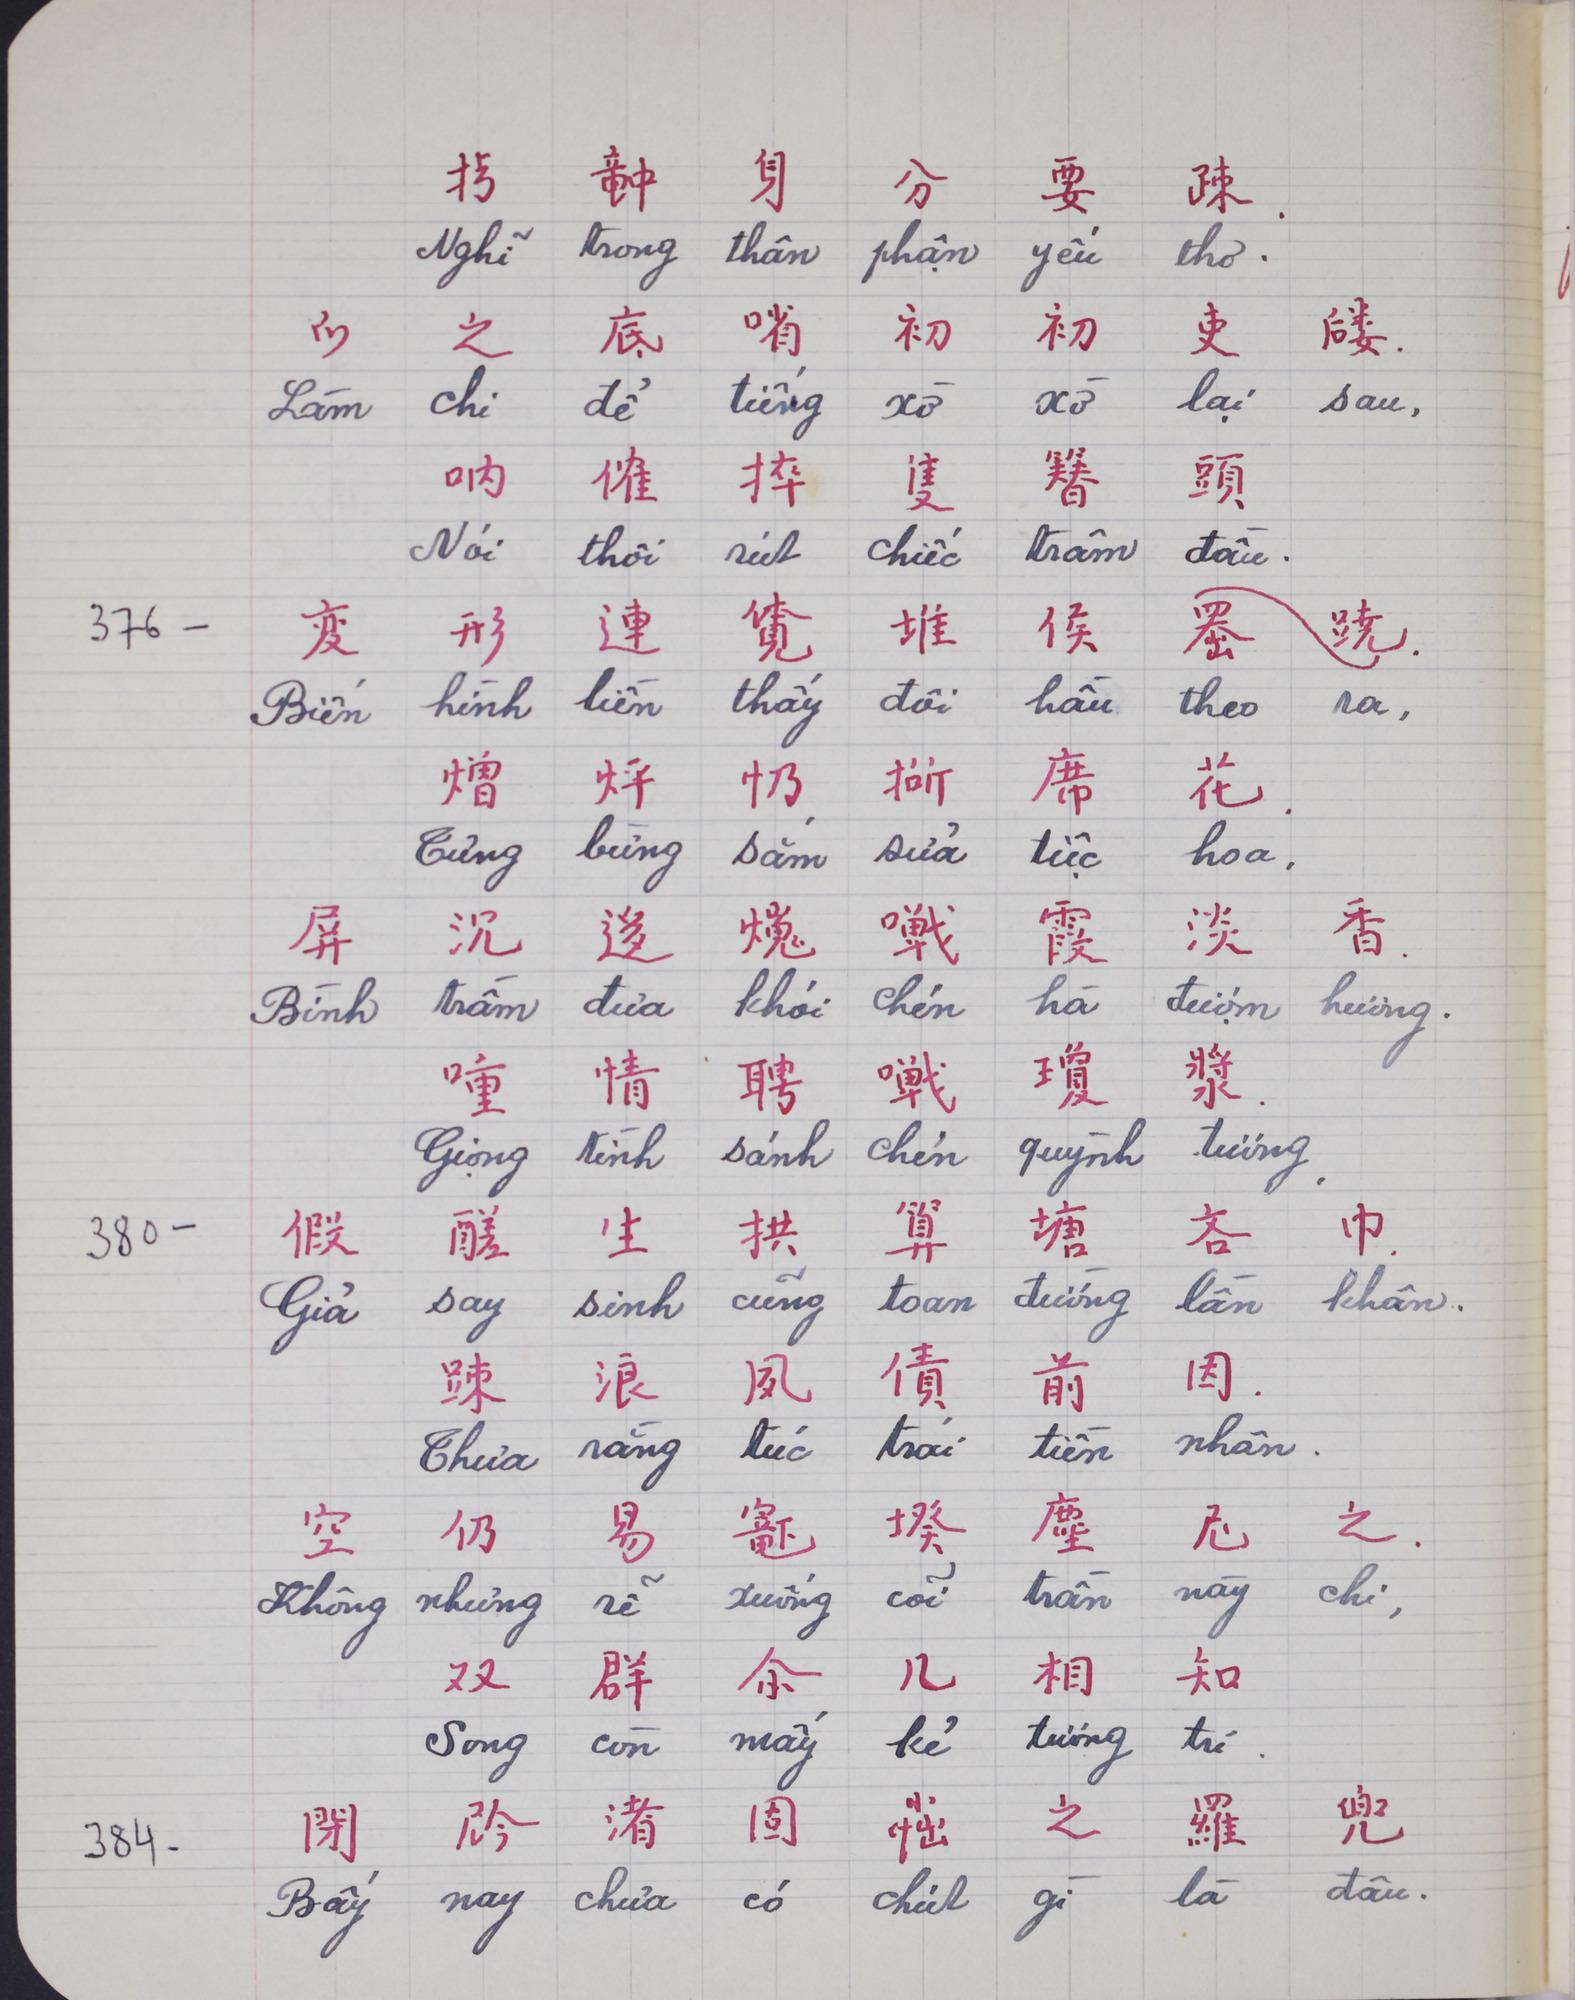 身 分 要 疎.
Nghĩ trong thân phận yếu thơ.
之 底 哨 初 初 吏 𢖖.
Làm chi để tiếng xờ xờ lại sau,
吶 傕 捽 隻 簪 頭
Nói thôi rút chiếc trâm đầu.
376 - 変 形 連 覓 堆 侯 蹺.
Biến hình liền thấy đôi hầu theo ra,
熷 烀 席 花.
Tưng bừng sắm sửa tiệc hoa,
屏 沉 迻 霞 淡 香.
Bình trầm đưa khói chén hà đượm hương.
喠 情 聘 瓊 漿.
Giọng tình sánh chén quỳnh tương,
380 - 假 醝 生 拱 算 塘 吝 巾.
Giả say sinh cũng toan đường lần khân.
踈 浪 夙 債 前 因.
Thưa rằng túc trái tiền nhân.
空 仍 易 塵 尼 之.
Không nhưng rễ xuống cõi trần này chi,
双 群 余 几 相 知
Song còn mấy kẻ tương tri.
384 - 閉 渚 固 之 羅 兜
Bấy nay chưa có chút gì là đâu.